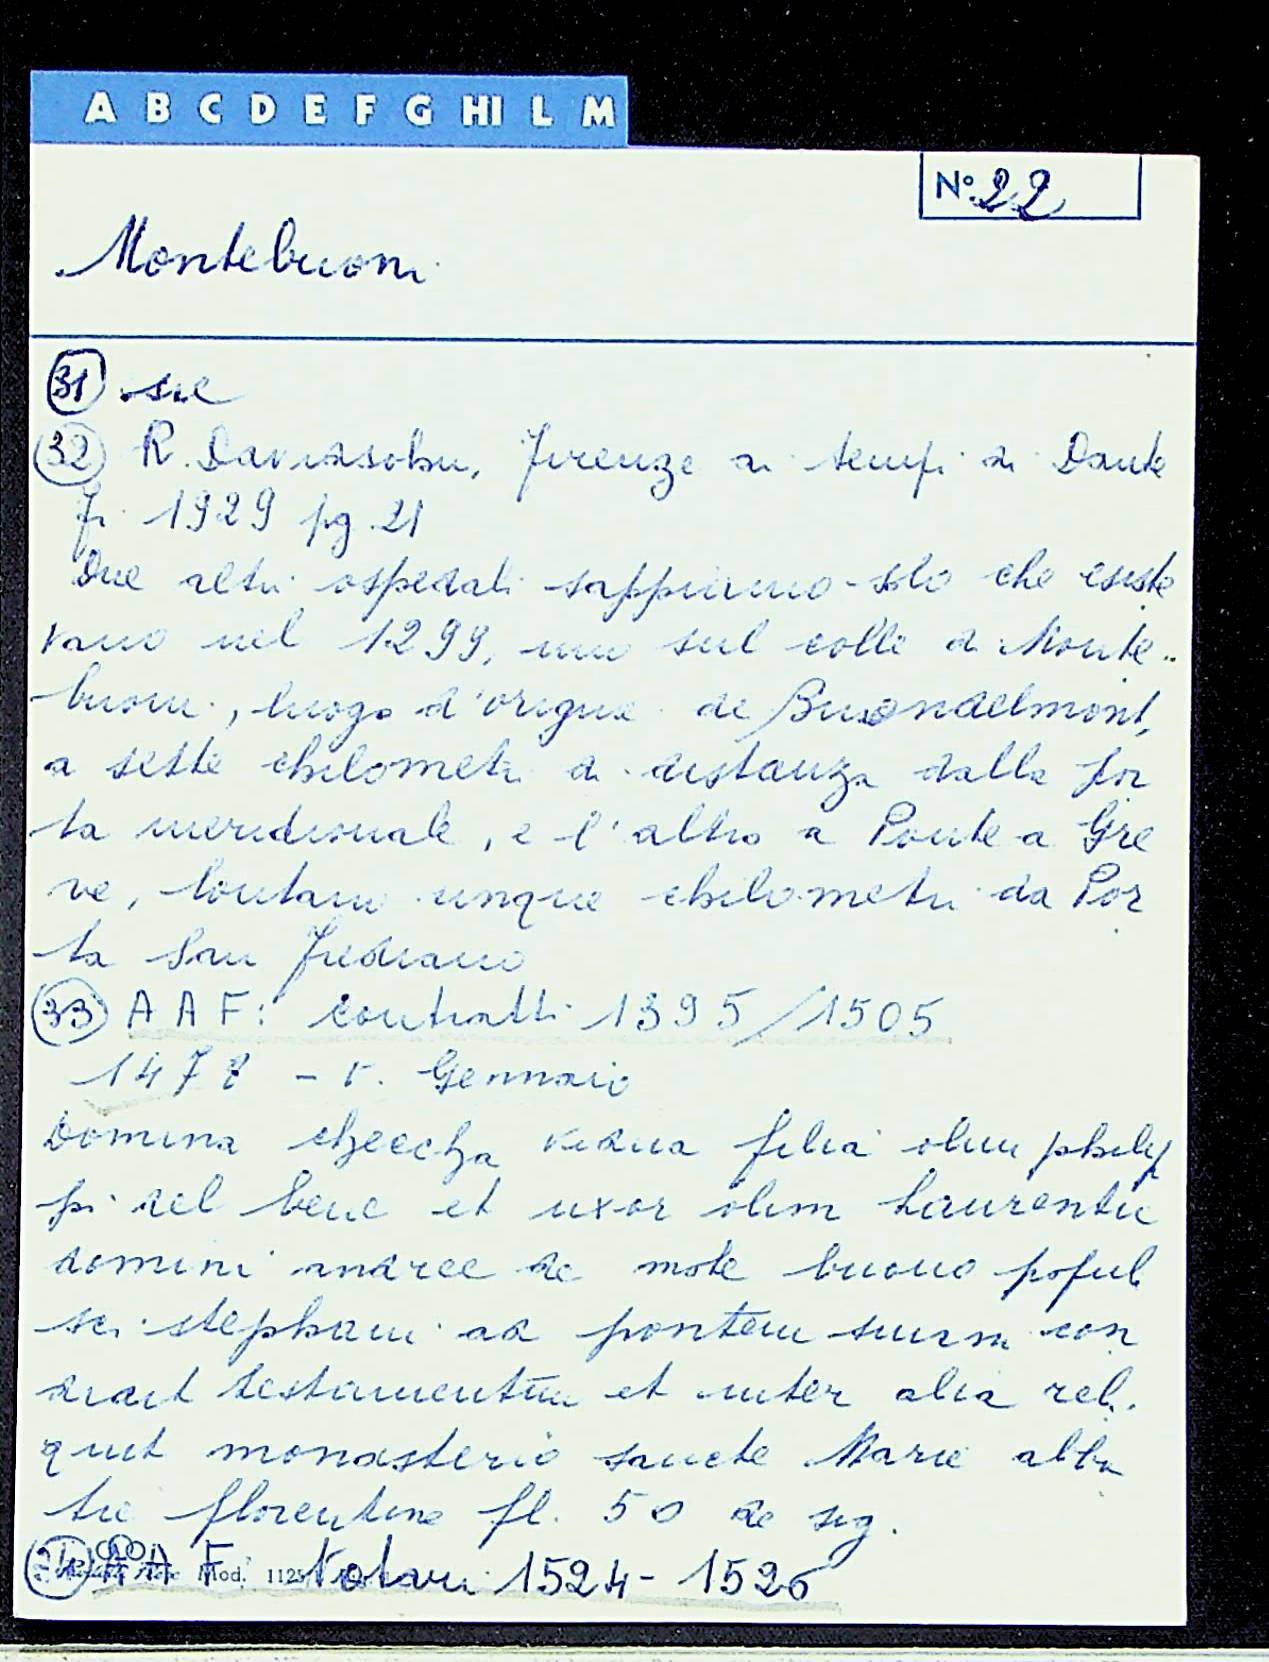 A B C D E F G HI L M
N° 22
Montebuoni
31 sic
32 R. Davidsohn, Firenze ai tempi di Dante
Fi 1929 pg 21
Due altri ospedali sappiamo solo che esiste
vano nel 1299, uno sul colle di Monte
buoni, luogo d'origine dei Buondelmonti,
a sette chilometri di distanza dalla por
ta meridionale, e l'altro a Ponte a Gre
ve, lontano cinque chilometri da Por
ta San Frediano
33 A A F: contratti 1395/1505
1478 - V. Gennaio
Domina checcha vidua filia olim philip
pi del bene et uxor olim Laurentii
domini andree de mote buono populi
sci stephani ad pontem suum con
didit testamentum et inter alia reli
quit monasterio sancte Marie abba
tie florentine fl. 50 de sig.
34 A A F. Notari 1524-1526
Mod. 1125